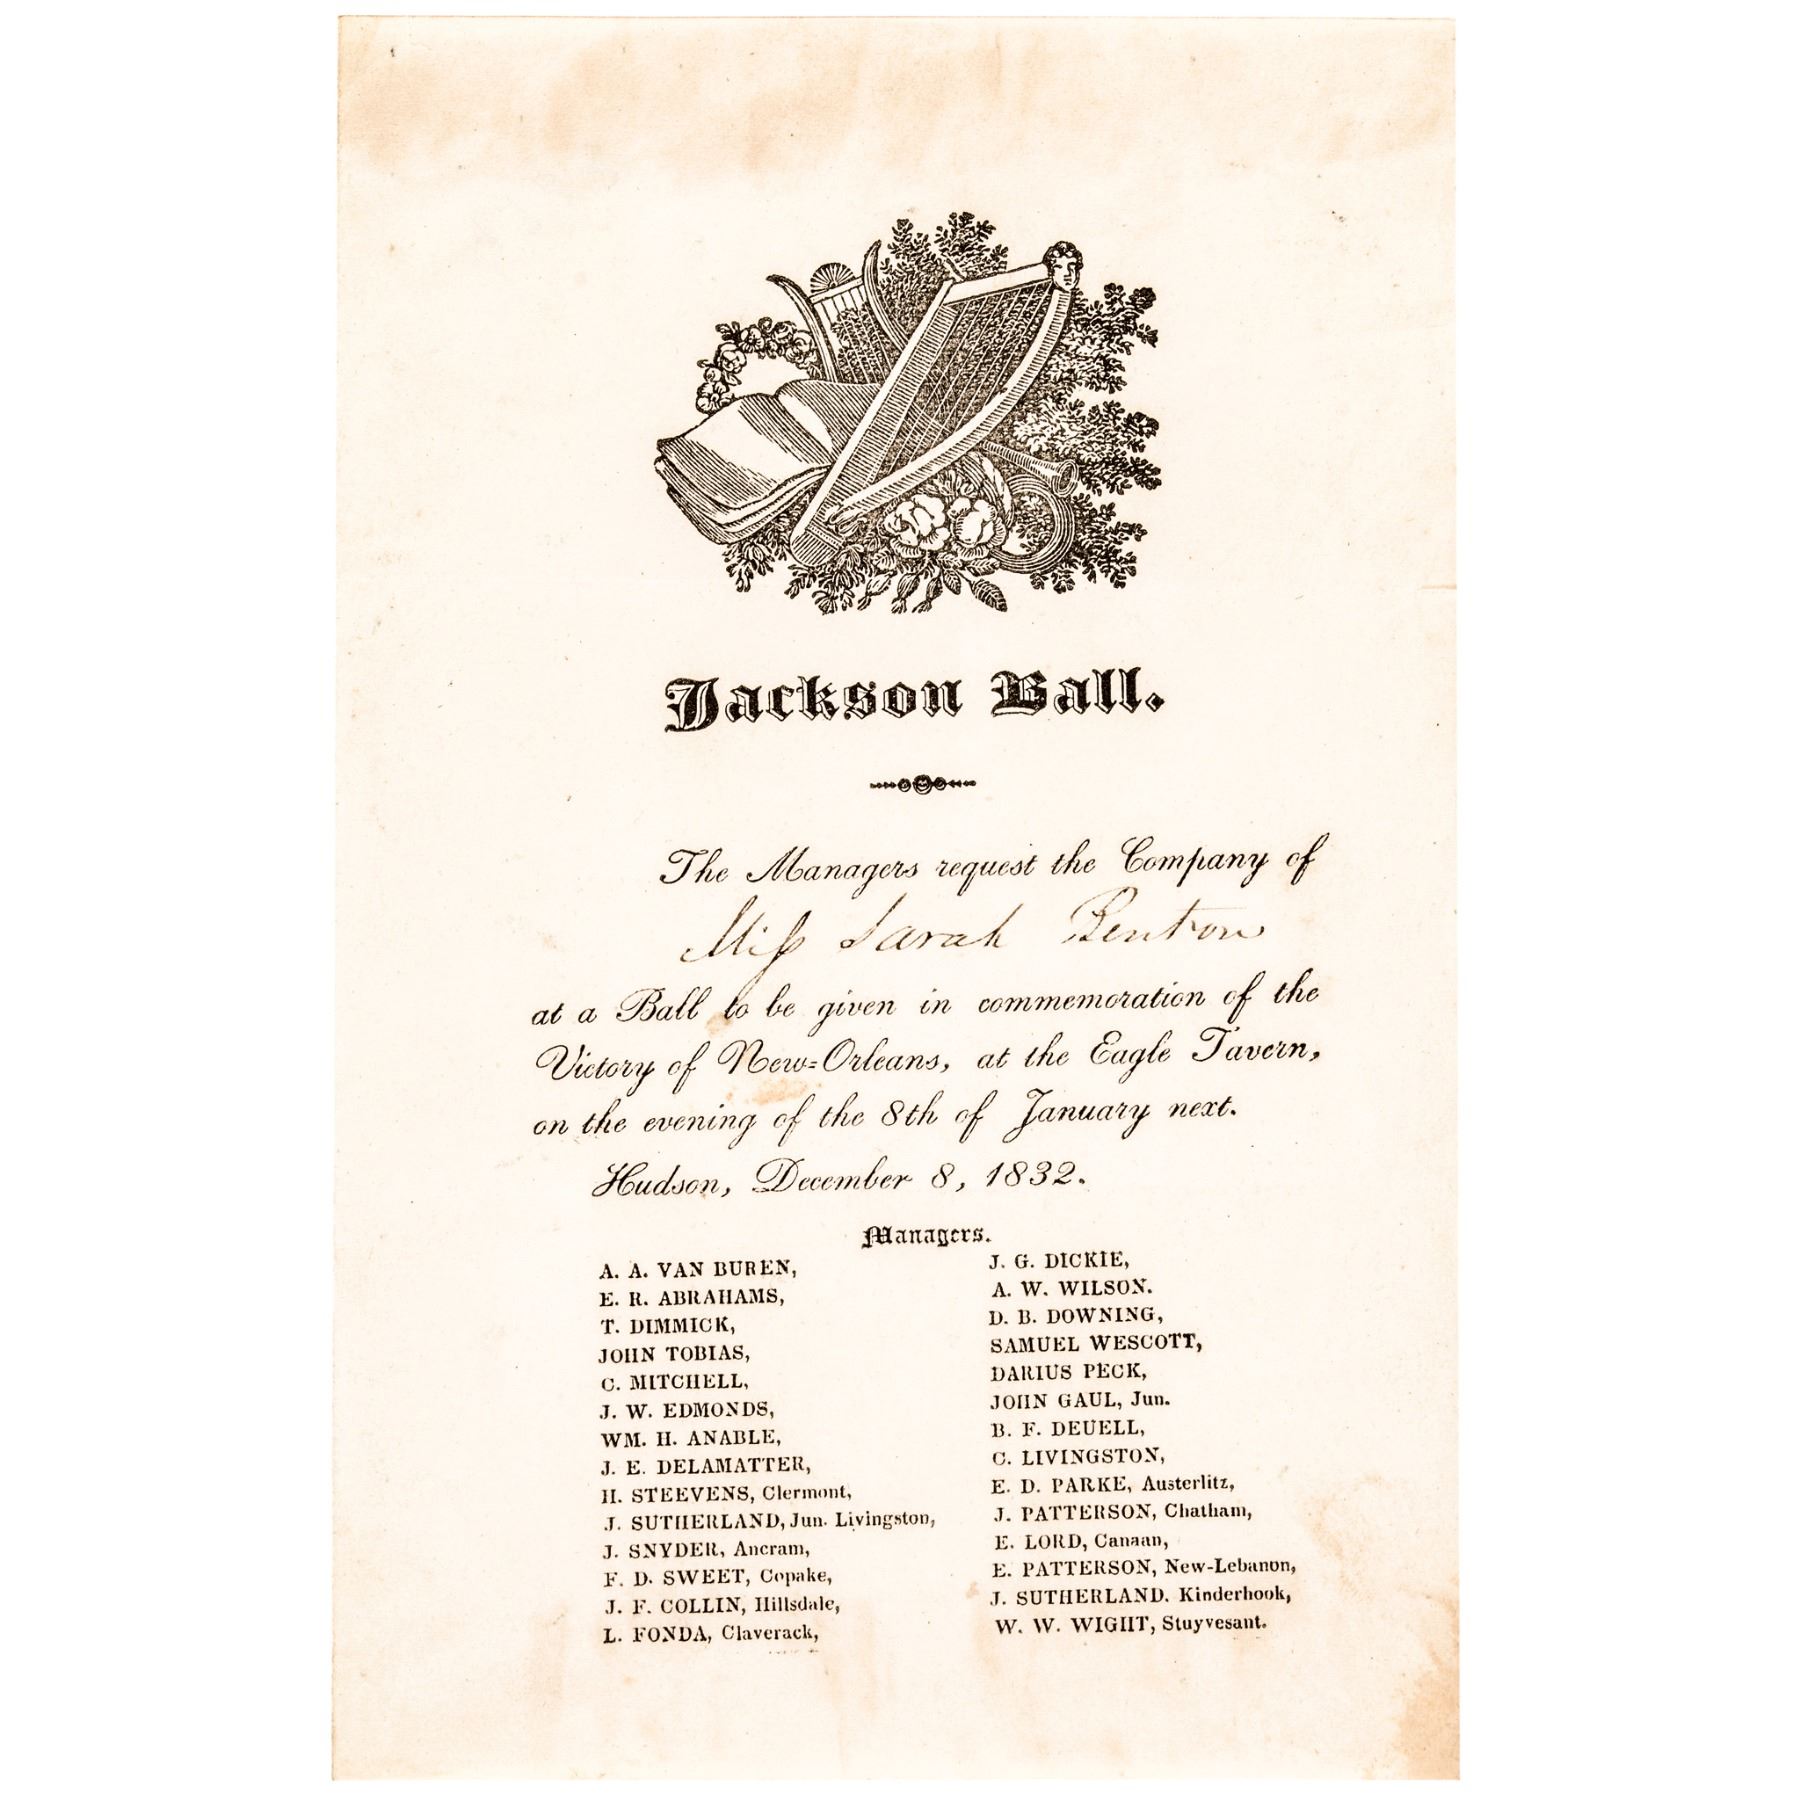 Jackson Ball.
The Managers request the Company of
Miſs Sarah Benton
at a Ball to be given in commemoration of the
Victory of New-Orleans, at the Eagle Tavern,
on the evening of the 8th of January next.
Hudson, December 8, 1832.
Managers.
A. A. VAN BUREN,
E. R. ABRAHAMS,
T. DIMMICK,
JOHN TOBIAS,
C. MITCHELL,
J. W. EDMONDS,
WM. H. ANABLE,
J. E. DELAMATTER,
H. STEEVENS, Clermont,
J. SUTHERLAND, Jun. Livingston,
J. SNYDER, Ancram,
F. D. SWEET, Copake,
J. F. COLLIN, Hillsdale,
L. FONDA, Claverack,
J. G. DICKIE,
A. W. WILSON.
D. B. DOWNING,
SAMUEL WESCOTT,
DARIUS PECK,
JOHN GAUL, Jun.
B. F. DEUELL,
C. LIVINGSTON,
E. D. PARKE, Austerlitz,
J. PATTERSON, Chatham,
E. LORD, Canaan,
E. PATTERSON, New-Lebanon,
J. SUTHERLAND. Kinderhook,
W. W. WIGHT, Stuyvesant.